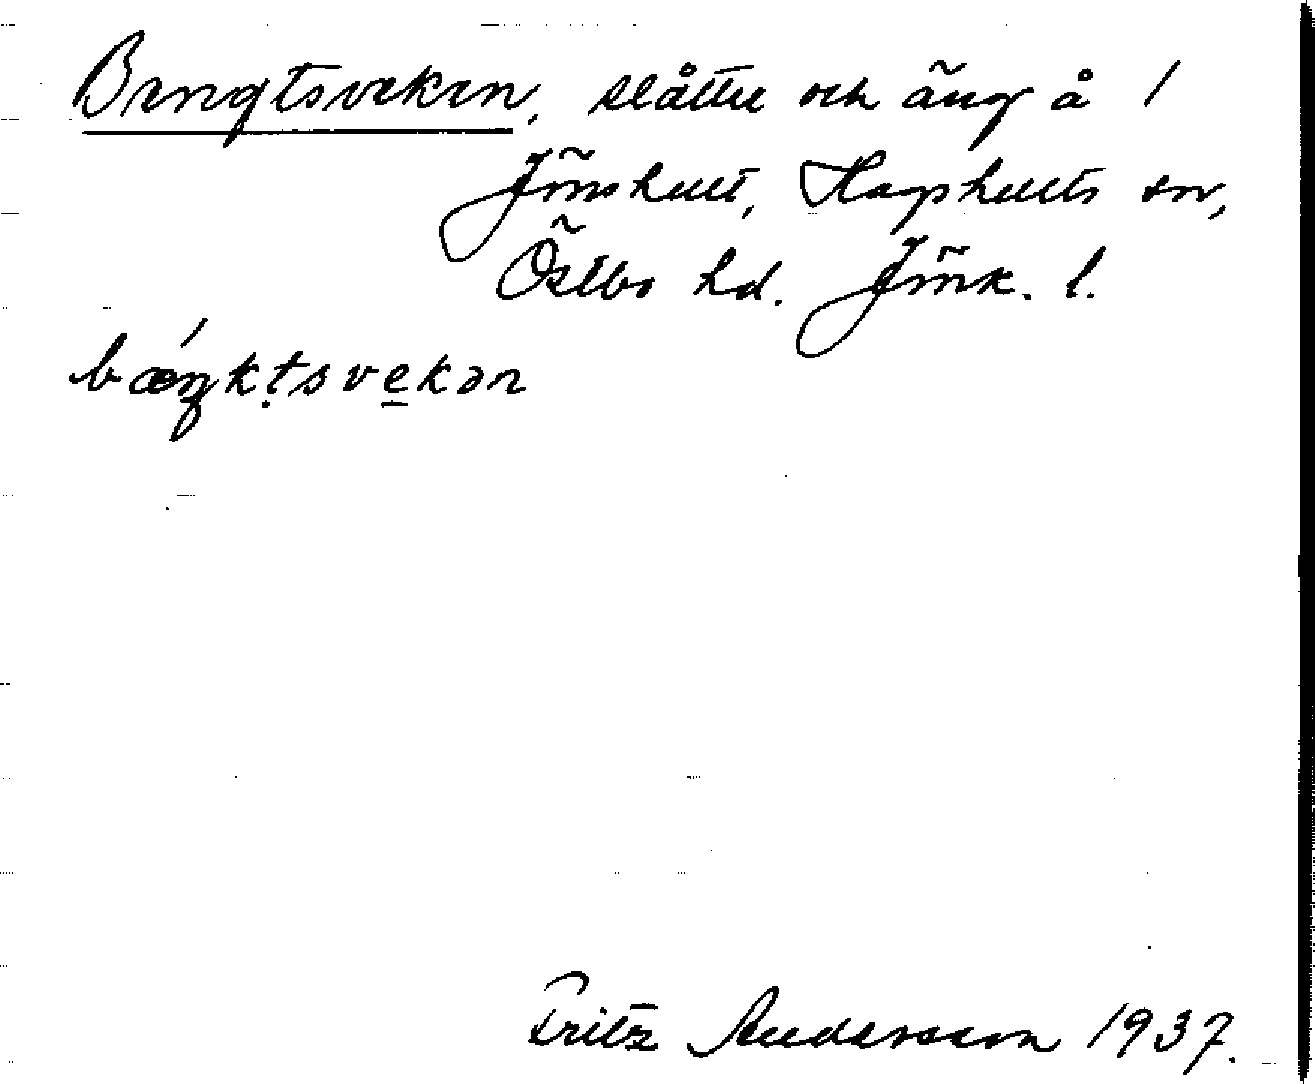 Bengtsveken, slåtte och äng å /
Jönshult, Hagshults sn,
Östbo hd. Jönk. l.
bǽŋkt̤svekən
Fritz Andersson 1937.